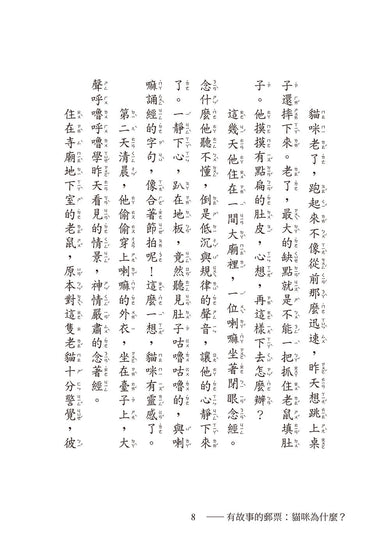 貓咪老了，跑起來不像從前那麼迅速，昨天想跳上桌
子還摔下來。老了，最大的缺點就是不能一把抓住老鼠填肚
子。他摸摸有點扁的肚皮，心想，再這樣下去怎麼辦？
這幾天他住在一間大廟裡，一位喇嘛坐著閉眼念經。
念什麼他聽不懂，倒是低沉與規律的聲音，讓他的心靜下來
了。一靜下心，趴在地板，竟然聽見肚子咕嚕咕嚕的，與喇
嘛誦經的字句，像合著節拍呢！這麼一想，貓咪有靈感了。
第二天清晨，他偷偷穿上喇嘛的外衣，坐在臺子上，大
聲呼嚕呼嚕學昨天看見的情景，神情嚴肅的念著經。
住在寺廟地下室的老鼠，原本對這隻老貓十分警覺，彼
8 ——有故事的郵票：貓咪為什麼？